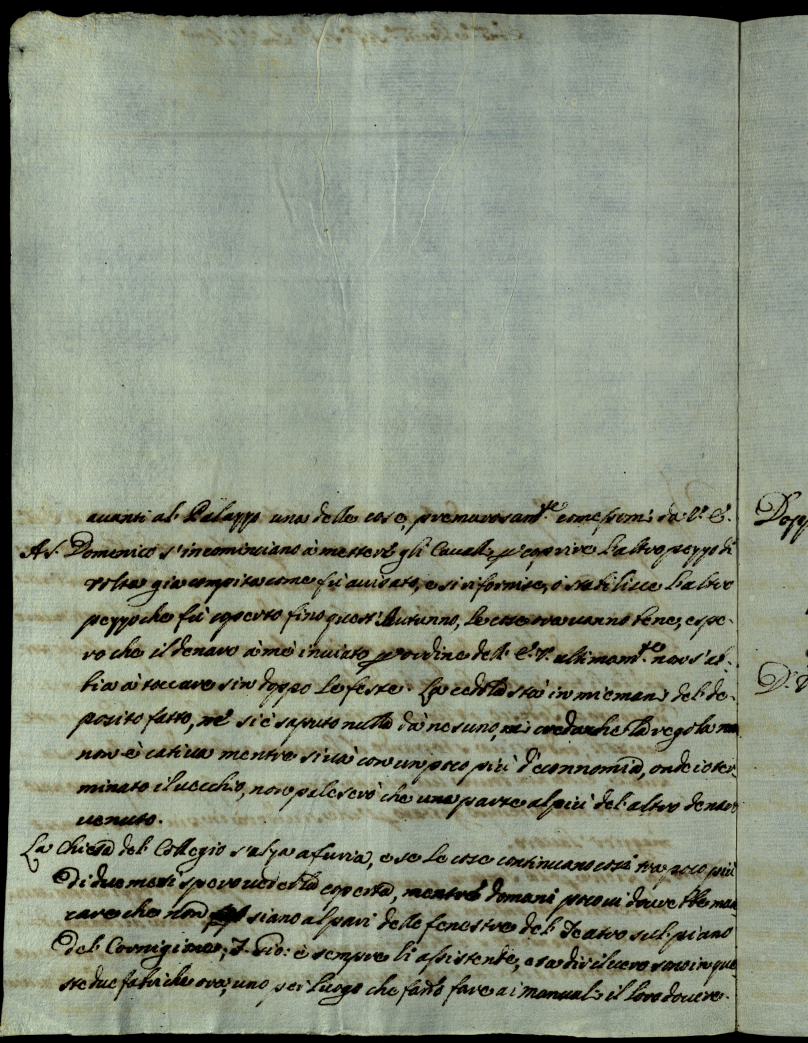 avanti al Palazzo una delle cose, premurosam.te come promi da V. E.
A S. Domenico s'incominciano à mettere gli Cavalli, p coprire l'altro pezzo di
volta gia compita come fù avisato, e si rifornise, ò stabilisce l'altro
pezzo che fù coperto fino quest'Autunno, le cose ora vanno bene, e spe-
ro che il denaro à me inviato p ordine dell'E. V. ultimam.te non s'ab-
bia à toccare sin doppo le feste. La cedola stà in mie mani del de-
posito fatto, ne si è saputo nulla dà nesuno, mi creda che la regola
non è cativa mentre si và con un poco più d'econnomia, onde io ter-
minato il vecchio, non paleserò che una parte al più del altro denaro
venuto.
La Chiesa del Collegio s'alza a furia, e se le cose continuano così tra poco più
di due mesi spero vederla coperta, mentre domani poco vi dovrebbe man
care che non siano al pari delle fenestre del Teatro sul piano
del Cornigione, S. Gio: è sempre lì assistente, e sa dir il vero sono in que-
ste due fabriche ora, uno per luogo che fanno fare a i manuali il loro dovere.
Dopp